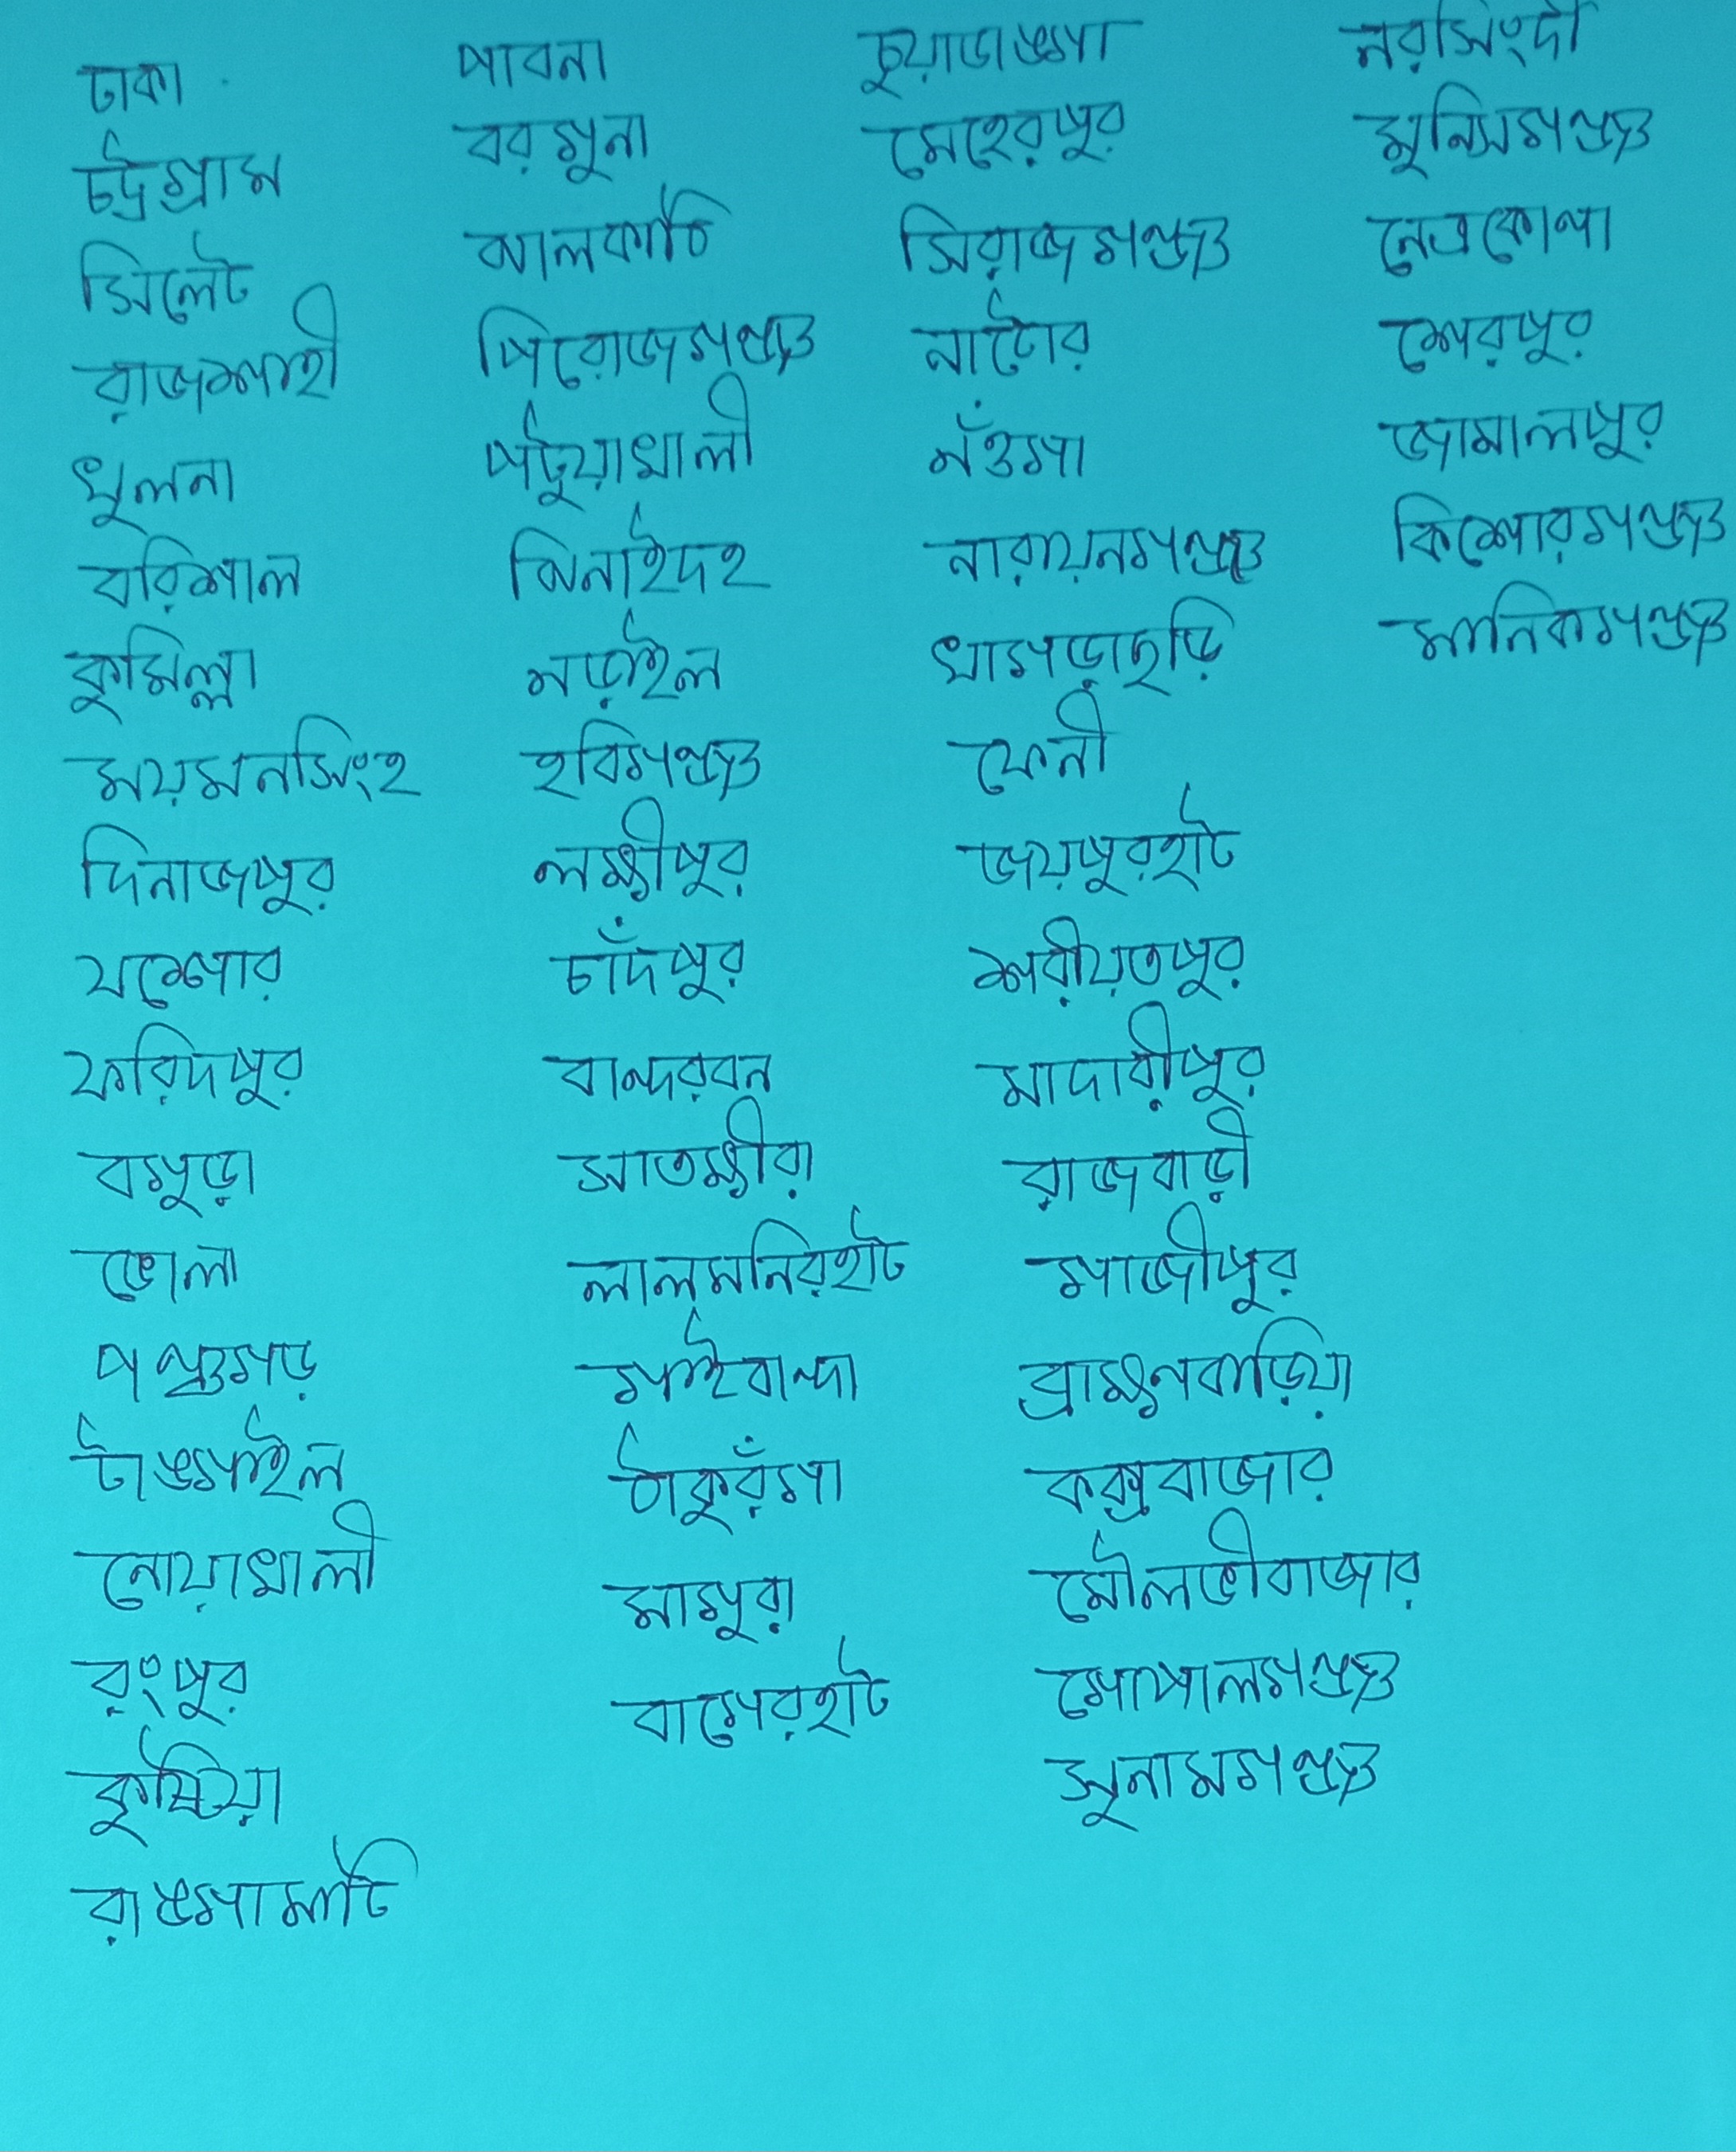 ঢাকা
চট্রগ্রাম
সিলেট
রাজশাহী
খুলনা
বরিশাল
কুমিল্লা
ময়মনসিংহ
দিনাজপুর
যশোর
ফরিদপুর
বগুড়া
ভোলা
পঞ্চগড়
টাঙ্গাইল
নোয়াখালী
রংপুর
কুষ্টিয়া
রাঙ্গামাটি
পাবনা
বরগুনা
ঝালকাঠি
পিরোজগঞ্জ
পটুয়াখালী
ঝিনাইদহ
নড়াইল
হবিগঞ্জ
লক্ষীপুর
চাঁদপুর
বান্দরবন
সাতক্ষীরা
লালমনিরহাট
গাইবান্দা
ঠাকুরঁগা
মাগুরা
বাগেরহাট
চুয়াডাঙ্গা
মেহেরপুর
সিরাজগঞ্জ
নাটোর
নঁওগা
নারায়নগঞ্জ
খাগড়াছড়ি
ফেনী
জয়পুরহাট
শরীয়তপুর
মাদারীপুর
রাজবাড়ী
গাজীপুর
ব্রাক্ষ্মণবাড়িয়া
কক্সবাজার
মৌলভীবাজার
গোপালগঞ্জ
সুনামগঞ্জ
নরসিংদী
মুন্সিগঞ্জ
নেত্রকোণা
শেরপুর
জামালপুর
কিশোরগঞ্জ
মানিকগঞ্জ